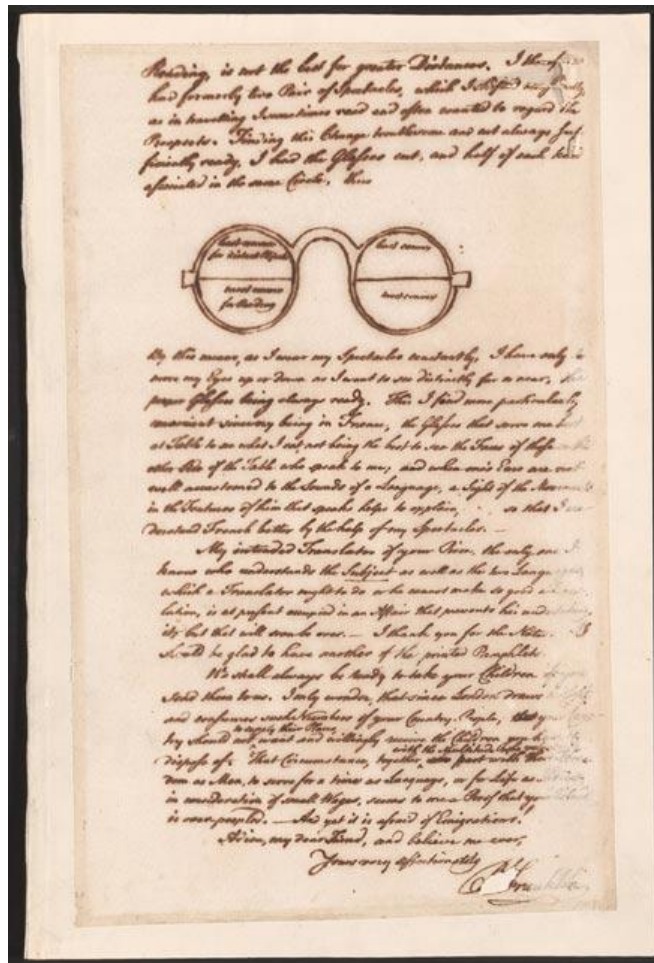 Reading, is not the best for greater Distances. I therefore
had formerly two Pair of Spectacles, which I shifted occasionally,
as in travelling I sometimes read and often wanted to regard the
Prospects. Finding this Change troublesome and not always suf-
ficiently ready, I had the Glasses cut, and half of each kind
associated in the same Circle, thus
least convex
for distant Objects
most convex
for Reading
least convex
most convex
By this means, as I wear my Spectacles constantly, I have only to
move my Eyes up or down as I want to see distinctly far or near, the
proper Glasses being always ready. This I find more particularly
convenient since my being in France, the Glasses that serve me best
at Table to see what I eat, not being the best to see the Faces of those on the
other Side of the Table who speak to me; and when one's Ears are not
well accustomed to the Sounds of a Language, a Sight of the Movements
in the Features of him that speaks helps to explain, so that I un-
derstand French better by the help of my Spectacles. —
My intended Translator of your Piece, the only one I
know who understands the Subject as well as the two Languages,
which a Translator ought to do or he cannot make so good a
lation, is at present occupied in an Affair that prevents his undertaking
it; but that will soon be over. — I thank you for the Notes. I
should be glad to have another of the printed Pamphlets.
We shall always be ready to take your Children if you
send them to us. I only wonder, that since London draws to itself
and consumes such Numbers of your Country People, that your Coun-
to supply their Places,
try should not want and willingly receive the Children you have to
dispose of. That Circumstance, together with the Multitude who
part with their Free-
dom as Men, to serve for a time as Lackeys, or for Life as
in consideration of small Wages, seems to me a Proof that your Island
is over-peopled. — And yet it is afraid of Emigrations!
Adieu, my dear Friend, and believe me ever,
Yours very affectionately
B Franklin